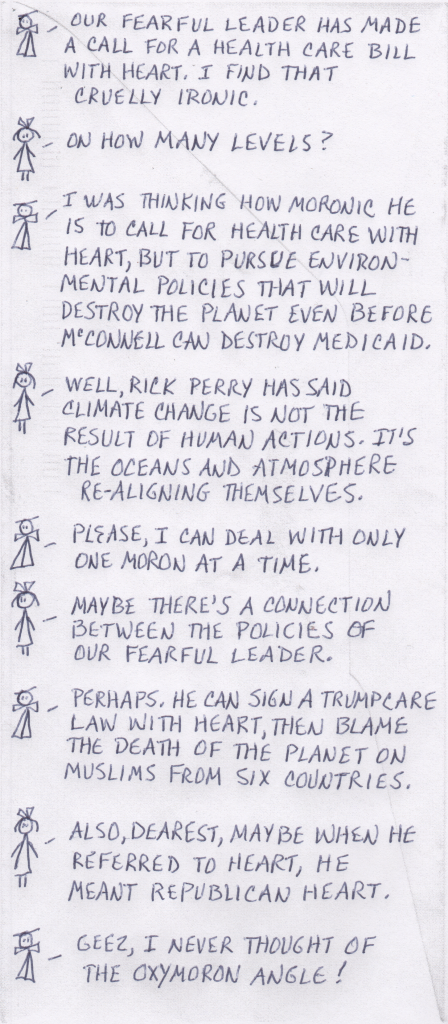 OUR FEARFUL LEADER HAS MADE
A CALL FOR A HEALTH CARE BILL
WITH HEART. I FIND THAT
CRUELLY IRONIC.
ON HOW MANY LEVELS?
I WAS THINKING HOW MORONIC HE
IS TO CALL FOR HEALTH CARE WITH
HEART, BUT TO PURSUE ENVIRON-
MENTAL POLICIES THAT WILL
DESTROY THE PLANET EVEN BEFORE
McCONNELL CAN DESTROY MEDICAID.
WELL, RICK PERRY HAS SAID
CLIMATE CHANGE IS NOT THE
RESULT OF HUMAN ACTIONS. IT'S
THE OCEANS AND ATMOSPHERE
RE-ALIGNING THEMSELVES.
PLEASE, I CAN DEAL WITH ONLY
ONE MORON AT A TIME.
MAYBE THERE'S A CONNECTION
BETWEEN THE POLICIES OF
OUR FEARFUL LEADER.
PERHAPS. HE CAN SIGN A TRUMPCARE
LAW WITH HEART, THEN BLAME
THE DEATH OF THE PLANET ON
MUSLIMS FROM SIX COUNTRIES.
ALSO, DEAREST, MAYBE WHEN HE
REFERRED TO HEART, HE
MEANT REPUBLICAN HEART.
GEEZ, I NEVER THOUGHT OF
THE OXYMORON ANGLE!